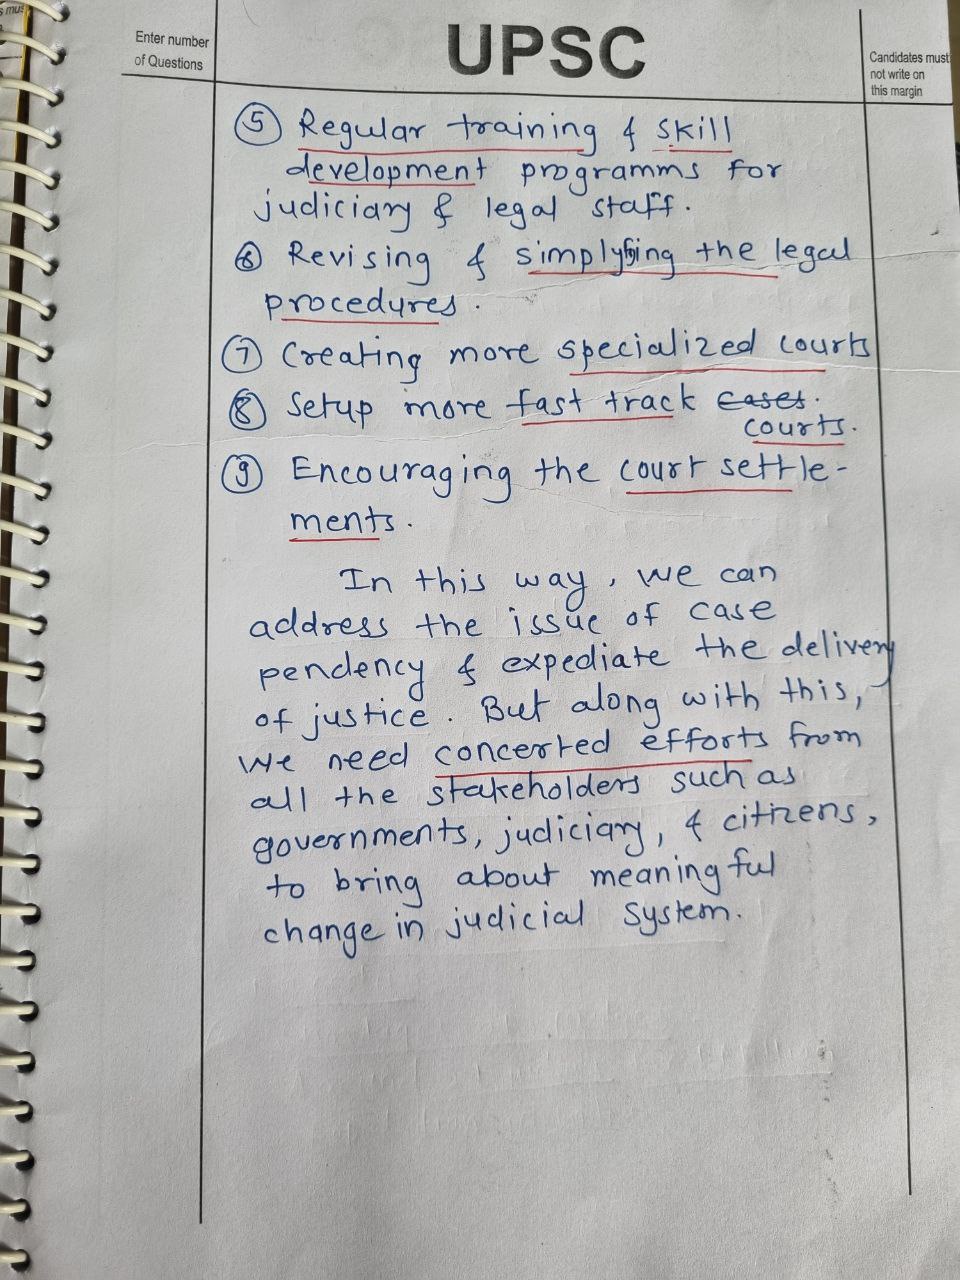 s mus
Enter number
of Questions
UPSC
Candidates must
not write on
this margin
⑤ Regular training & skill
development programms for
judiciary & legal staff.
⑥ Revising & simplyfing the legal
procedures.
⑦ Creating more specialized courts
⑧ Setup more fast track cases.
courts.
⑨ Encouraging the court settle-
ments.
In this way, we can
address the issue of case
pendency & expediate the delivery
of justice. But along with this,
we need concerted efforts from
all the stakeholders such as
governments, judiciary, & citizens,
to bring about meaningful
change in judicial system.